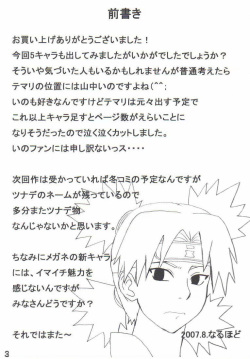 前書き
お買い上げありがとうございました！
今回5キャラも出してみましたがいかがでしたでしょうか？
そういや気づいた人もいるかもしれませんが普通考えたら
テマリの位置には山中いのですよね(^^；
いのも好きなんですけどテマリは元々出す予定で
これ以上キャラ足すとページ数がえらいことに
なりそうだったので泣く泣くカットしました。
いのファンには申し訳ないっス・・・・
次回作は受かっていれば冬コミの予定なんですが
ツナデのネームが残っているので
多分またツナデ物
なんじゃないかと思います。
ちなみにメガネの新キャラ
には、イマイチ魅力を
感じないんですが
みなさんどうですか？
それではまた～
2007.8.なるほど
3